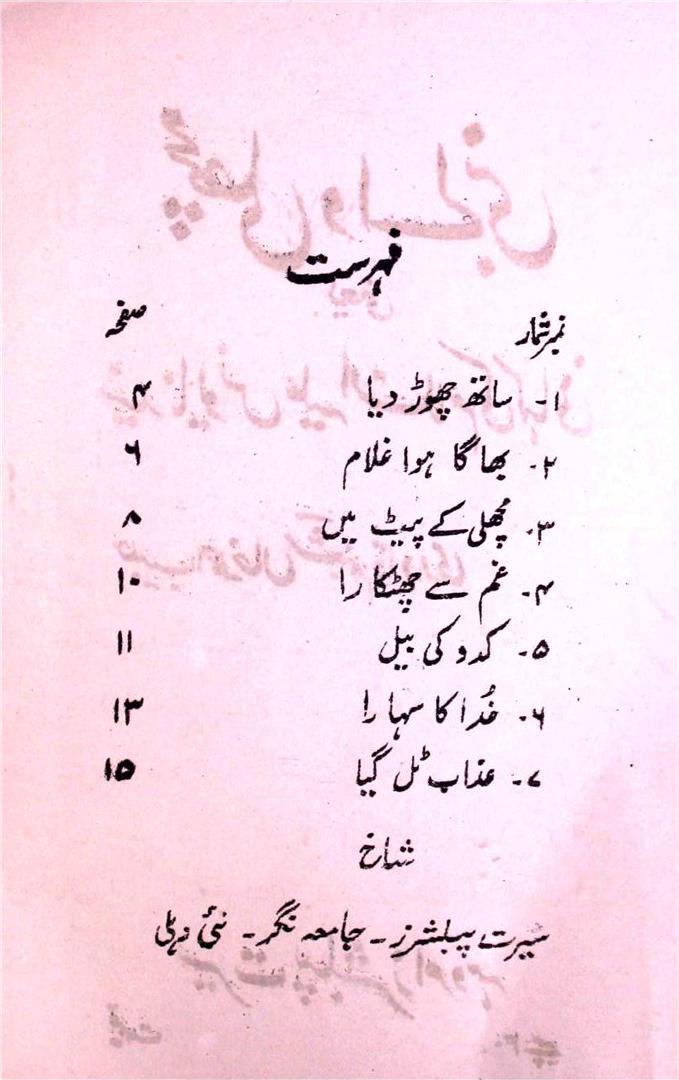 فہرست
نمبر شمار صفحہ
۱۔ ساتھ چھوڑ دیا ۴
۲۔ بھاگا ہوا غلام ۶
۳۔ مچھلی کے پیٹ میں ۸
۴۔ غم سے چھٹکارا ۱۰
۵۔ کدو کی بیل ۱۱
۶۔ خُدا کا سہارا ۱۳
۷۔ عذاب ٹل گیا ۱۵
شاخ
سیرت پبلشرز۔ جامعہ نگر۔ نئی دہلی